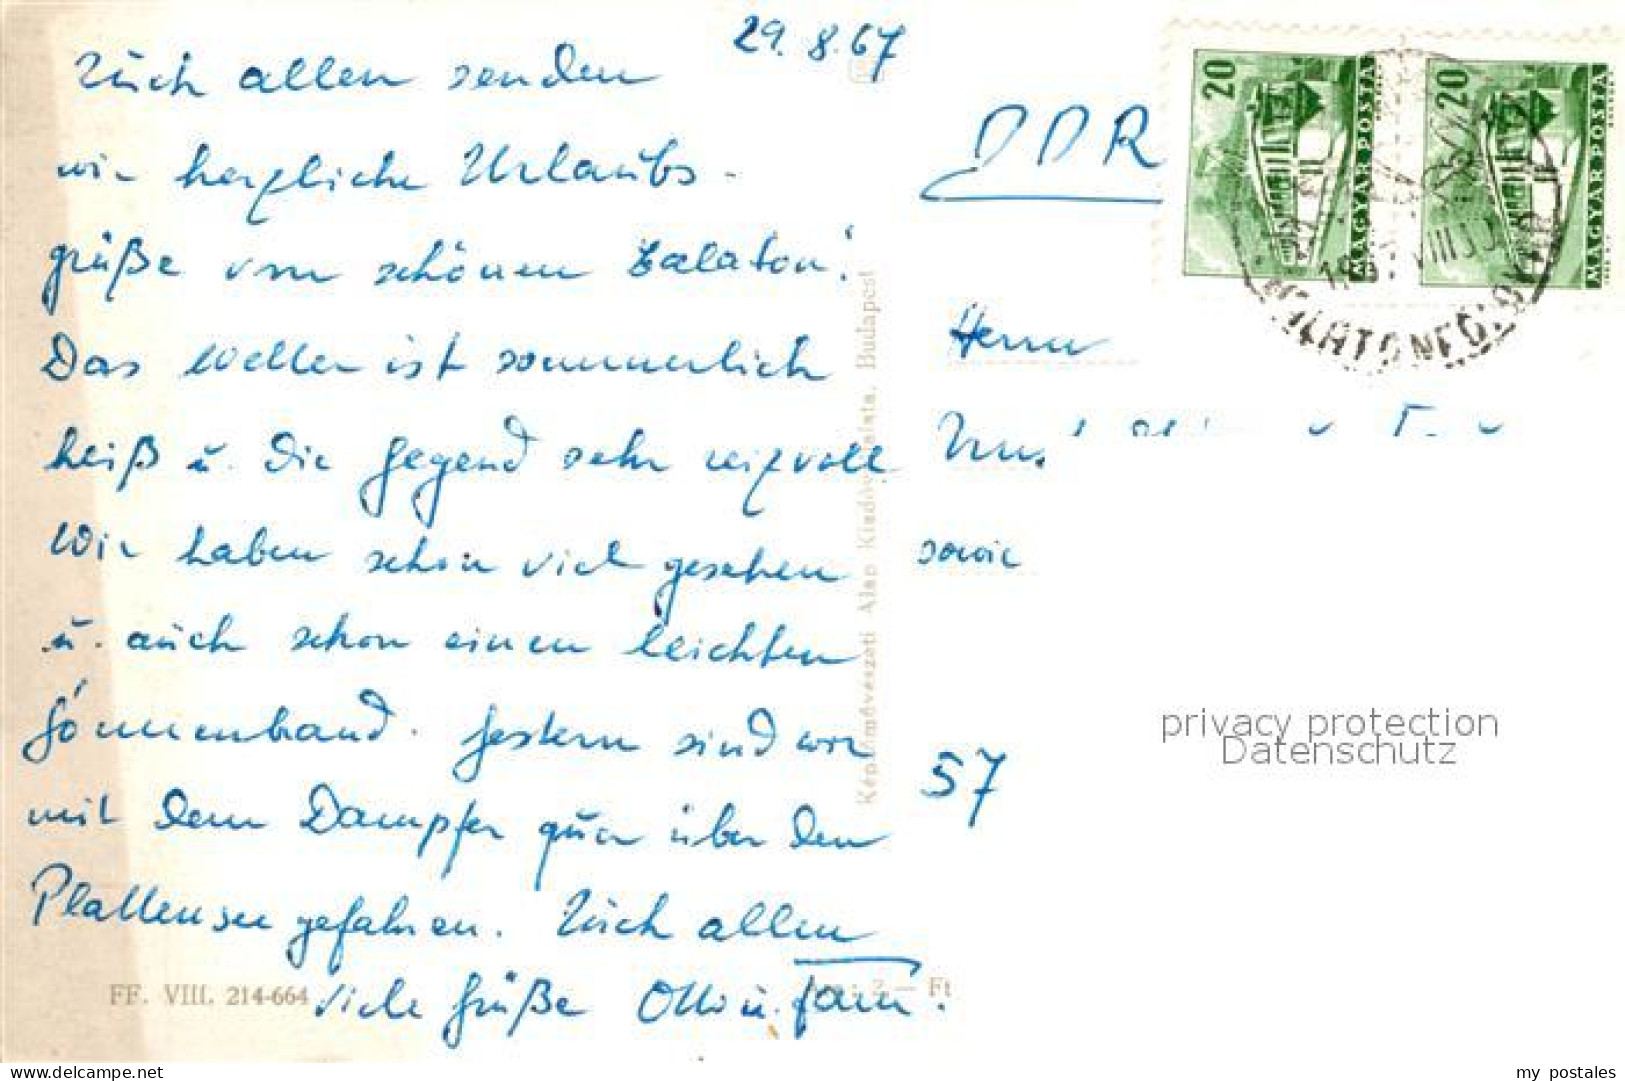 29.8.67
Euch allen senden
wir herzliche Urlaubs-
grüße vom schönen Balaton!
Das Wetter ist sommerlich
heiß u. die Gegend sehr reizvoll
Wir haben schon viel gesehen
u. auch schon einen leichten
Sonnenbrand. Gestern sind wir
mit dem Dampfer quer über den
Plattensee gefahren. Euch allen
viele Grüße Otto u. Fam.
FF. VIII. 214-664
2 — Ft
Képzőművészeti Alap Kiadóvállalata, Budapest
DDR
Herrn
sowie
57
20
MAGYAR POSTA
20
MAGYAR POSTA
privacy protection
Datenschutz
my postales